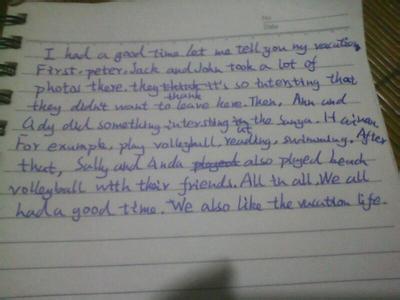 No.
Date
I had a good time let me tell you my vacation
First. peter, Jack and John took a lot of
photos there. they think it's so intersting that
thank
they didn't want to leave here. Then, Ann and
Ady did something intersting in the Sanya. Hainan.
at
For example, play volleyball, reading, swimming. After
that, Sally and Anda played also played beach
volleyball with their friends. All in all, We all
had a good time. We also like the vacation life.